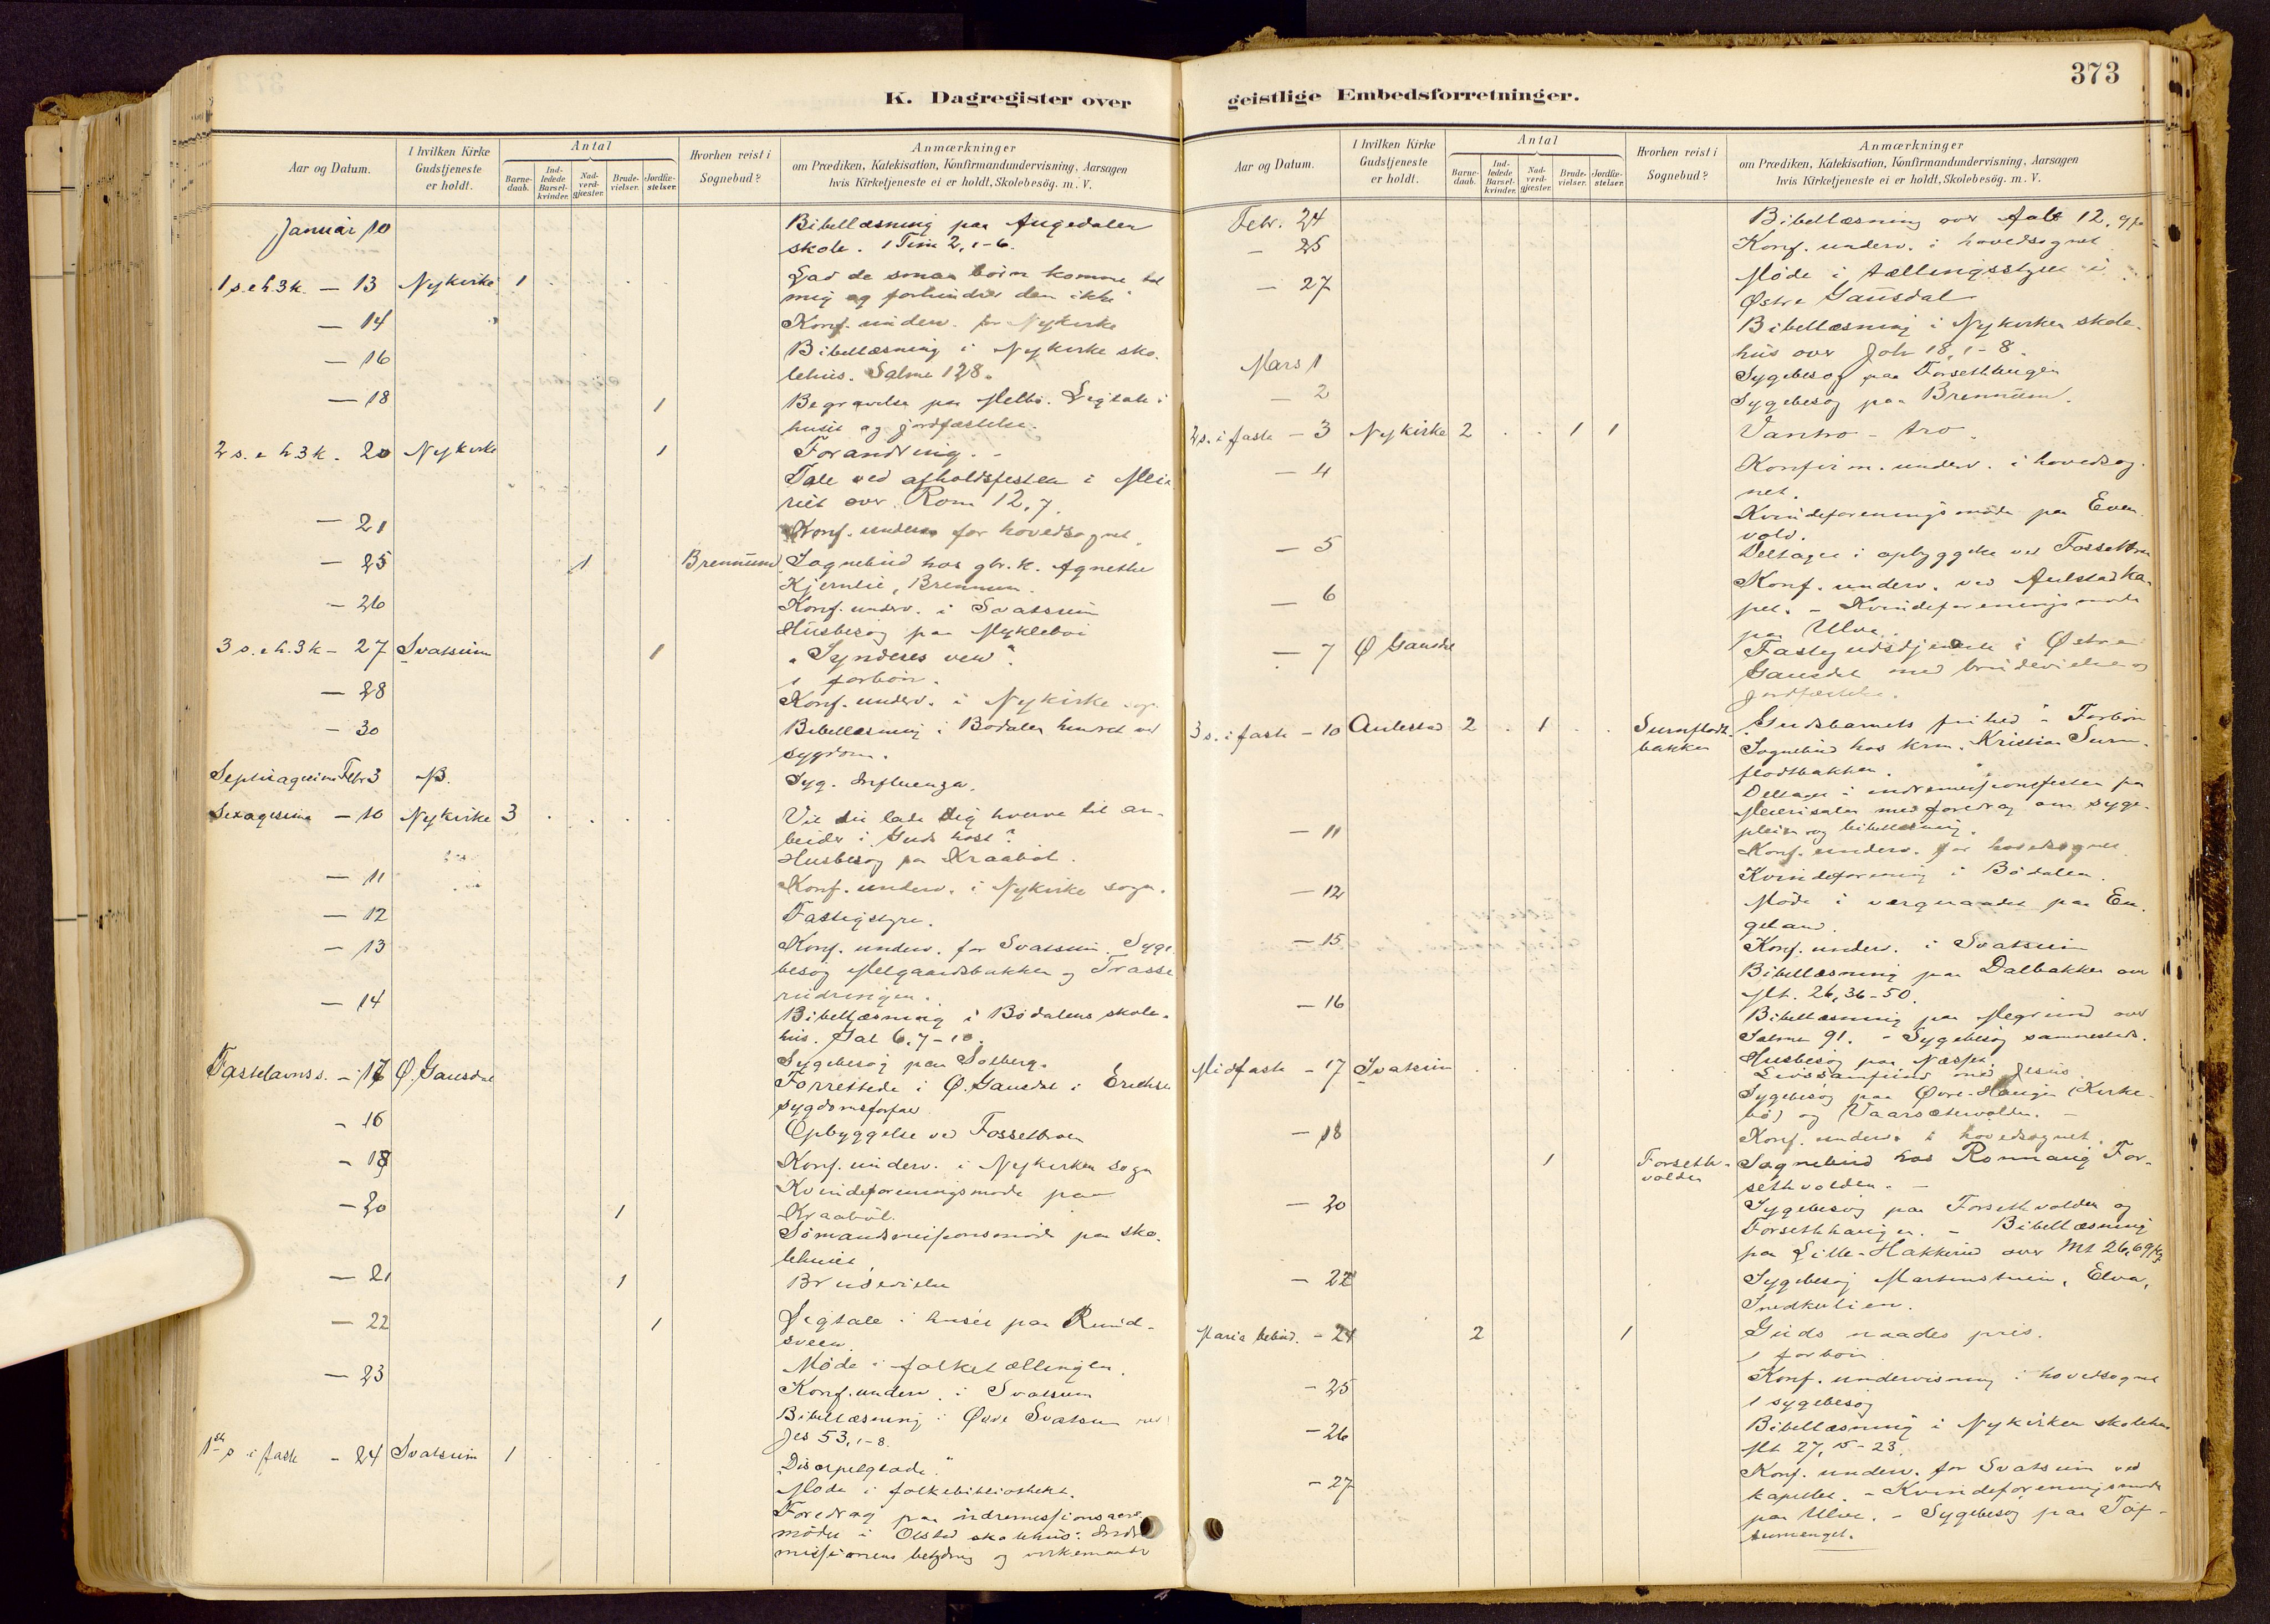 K. Dagregister over
Aar og Datum.
I hvilken Kirke Gudstjeneste er holdt.
Antal
Barne-daab.
Ind-ledede Barsel-kvinder.
Nad-verd-gjæster.
Brude-vielser.
Jordfæ-stelser.
Hvorhen reist i Sognebud?
Anmærkninger
om Prædiken, Katekisation, Konfirmandundervisning, Aarsagen
hvis Kirketjeneste ei er holdt, Skolebesøg. m. V.
Januar 10 Bibellæsning paa Augedalen
skole. 1 Tim 2, 1-6.
1 s. e h. 3 k. — 13 Nykirke 1 Lad de smaa börn komme til
mig og forhindrer dem ikke
— 14 Konf. underv. for Nykirke
— 16 Bibellæsning i Nykirke sko-
lehus. Salme 128.
— 18 1 Begravelse paa Melbö. Ligtale i
huset og jordfæstelse.
2 s. e h. 3 k. 20 Nykirke 1 Forandring. -
Tale ved afholdsfesten i Mei-
riet over Rom 12, 7.
— 21 Konf. underv for hovedsognet.
— 25 1 Brennum Sognebud hos gbr. k. Agnethe
Kjernlie, Brennum.
— 26 Konf. underv. i Svatsum
Husbesög paa Mykleböi
3 s. e h. 3 k — 27 Svatsum 1 „Synderes ven".
1 forbön.
— 28 Konf. underv. i Nykirke sogn
— 30 Bibellæsning i Bödalen hindret ved
sygdom.
Septuagesima Febr 3 Syg. Influenza.
Sexagesima — 10 Nykirke 3 Vil du lade dig hverve til ar-
beider i Guds höst?
Husbesög paa Kraaböl.
— 11 Konf. underv. i Nykirke sogn.
— 12 Fattigstyre.
— 13 Konf. underv. for Svatsum. Syge-
besög Melgaardsbakken og
— 14 Bibellæsning i Bödalens skole-
hus. Gal 6, 7-10.
Sygebesög paa Solberg.
Fastelavns s. — 17 Ö. Gausdal Forrettede i Ö. Gausdal i
sygdomsforfald
- 16 Opbyggelse ved Fossetbroen
- 18 Konf. underv. i Nykirken sogn
Kvindeforeningsmöde paa
- 20 1 Kraaböl.
Sömandsmissionsmöde paa sko-
lehuset
— 21 1 Brudevielse
— 22 1 Ligtale i huset paa Rund-
sveen.
— 23 Möde i folketællingen.
Konf. underv. i Svatsum
Bibellæsning i Övre Svatsum over
Jes 53, 1-8.
1ste s. i faste - 24 Svatsum 1 „Discipelglæde."
Möde i folkebibliotheket.
Foredrag paa indremissionsaars-
mödet i Olstad skolehus: Indre-
missionens betydning og virkemaade
geistlige Embedsforretninger.
373
Aar og Datum.
I hvilken Kirke Gudstjeneste er holdt.
Antal
Barne-daab.
Ind-ledede Barsel-kvinder.
Nad-verd-gjæster.
Brude-vielser.
Jordfæ-stelser.
Hvorhen reist i Sognebud?
Anmærkninger
om Prædiken, Katekisation, Konfirmandundervisning, Aarsagen
hvis Kirketjeneste ei er holdt, Skolebesög. m. V.
Febr. 24 Bibellæsning over 12, 9
- 25 Konf. underv. i hovedsognet
- 27 Möde i tællingsstyret i
Östre Gausdal
Bibellæsning i Nykirken skole-
hus over Joh 18, 1-8.
Mars 1 Sygebesög paa Forsethbergen
— 2 Sygebesög paa Brennum.
2 s. i faste — 3 Nykirke 2 1 1 Vantro - tro.
— 4 Konfirm. underv. i hovedsog-
net.
Kvindeforeningsmöde paa Even-
vold.
— 5 Deltager i opbyggelse ved Fossetbroen
— 6 Konf. underv. ved Aulestad ka-
pel. - Kvindeforeningsmöde
paa Ulva.
— 7 Ö Gausdal Fastegudstjeneste i Östre
Gausdal med brudevielse og
jordfæstelse.
3 s. i faste — 10 Aulestad 2 1 Surnflodt-
bakken „Gudsbarnets frihed" - Forbön
Sognebud hos krm. Kristian Surn-
flodtbakken.
Deltager i indremissionsfesten paa
Meierisalen med foredrag om syge-
pleie og bibellæsning.
— 11 Konf. underv. for hovedsognet
Kvindeforening i Bödalen.
— 12 Möde i værgeraadet paa En-
geland.
— 15 Konf. underv. i Svatsum
Bibellæsning paa Dalbakken over
Mt. 26, 36-50.
— 16 Bibellæsning paa Megrund over
Salme 91. - Sygebesög sammesteds.
Husbesög paa Næsset.
Midfaste - 17 Svatsum Livssamfund med Jesus.
Sygebesög paa Övre-Haugen (Kirke-
bö) og Vaarsætervolden. -
— 18 Konf. underv. i hovedsognet.
1 Forseth-
volden Sognebud hos Rönnaug For-
sethvolden. -
— 20 Sygebesög paa Forsethvolden og
Forsethhaugen. - Bibellæsning
paa Lille-Hakkerud over Mt 26, 69 flg
- 22 Sygebesög Martinstuen, Elva,
Snedkerlien.
Maria bebud. - 24 2 1 Guds naades pris.
1 forbön
- 25 Konf. undervisning i hovedsognet
1 sygebesög
- 26 Bibellæsning i Nykirken skolehus
Mt 27, 15-23.
- 27 Konf. underv. for Svatsum ved
kapellet. - Kvindeforeningsmöde
paa Ulva. - Sygebesög paa Töf-